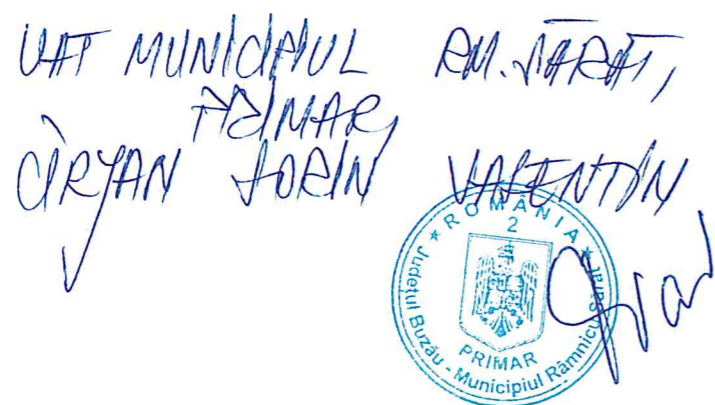 UAT MUNICIPIUL RM. SĂRAT,
PRIMAR,
CÎRJAN SORIN VALENTIN
ROMÂNIA
2
PRIMAR
Județul Buzău - Municipiul Râmnicu Sărat